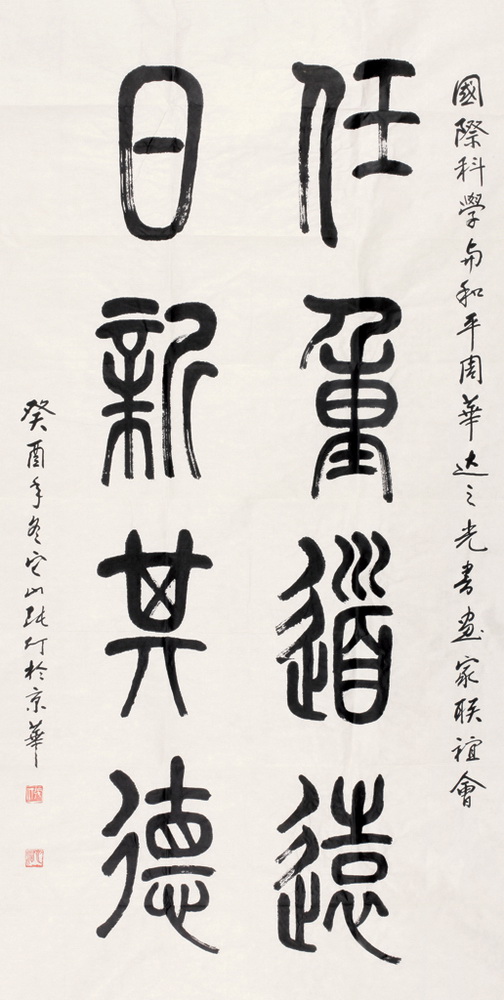 國際科學與和平周華達之光書画家联誼會
任重道遠
日新其德
癸酉年冬它山張仃於京華